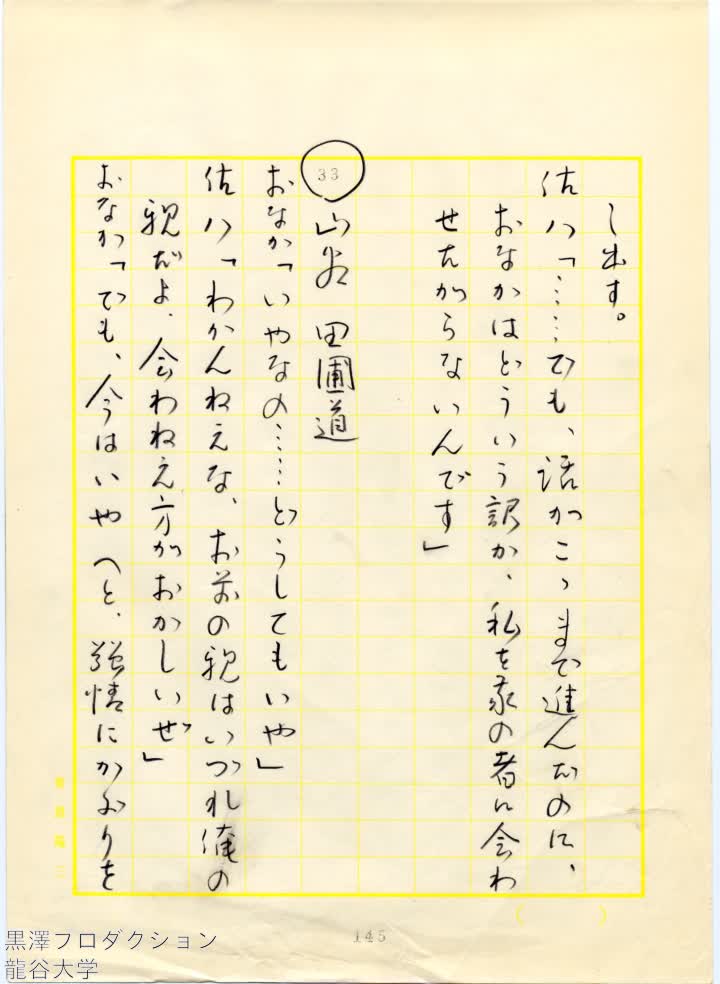 し出す。
佐八「……でも、話がこゝまで進んだのに、
おなかはどういう訳か、私を家の者に会わ
せたがらないんです」
33 山谷 田圃道
おなか「いやなの……どうしてもいや」
佐八「わかんねえな、お前の親はいづれ俺の
親だよ、会わねえ方がおかしいぜ」
おなか「でも、今はいや（と、強情にかぶりを
145
黒澤プロダクション
龍谷大学